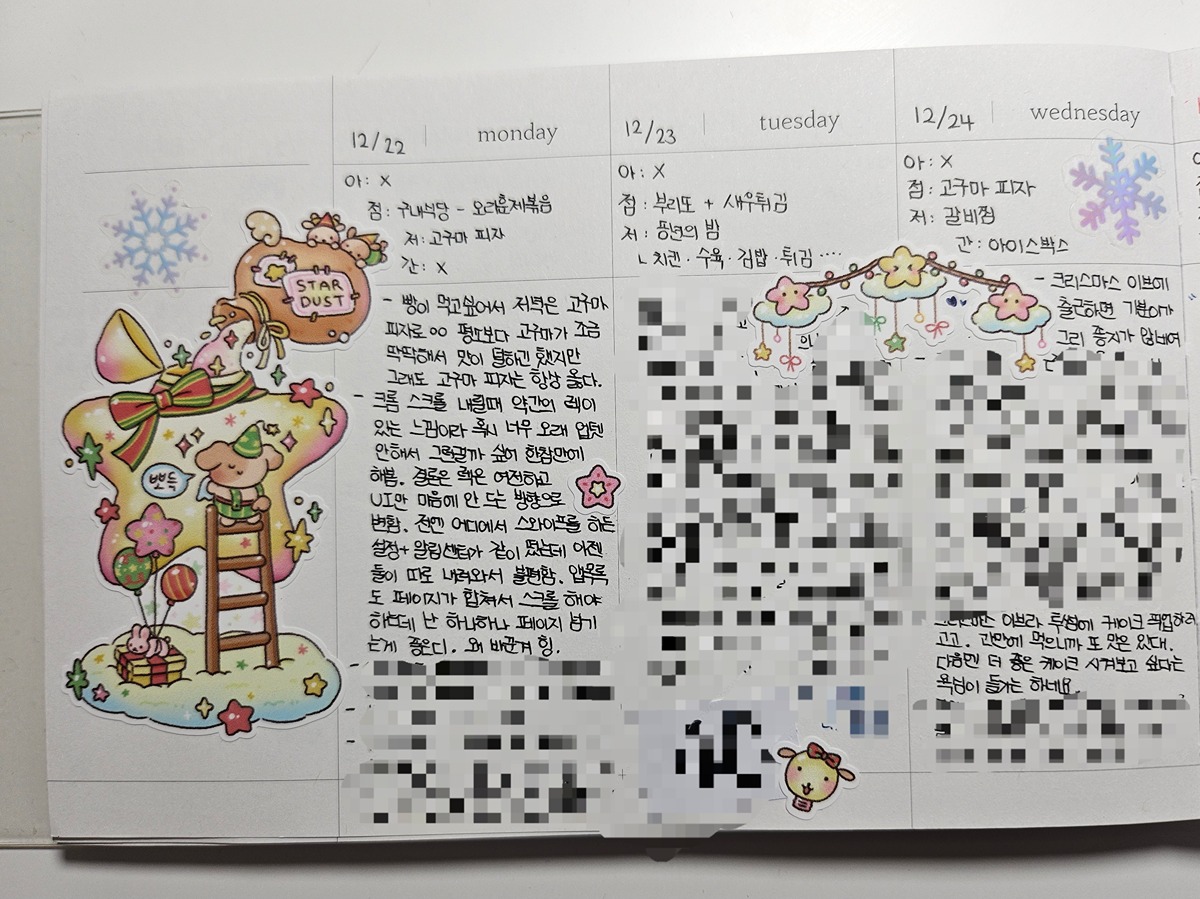 12/22 monday
아: X
점: 구내식당 - 오리훈제볶음
저: 고구마 피자
간: X
- 빵이 먹고싶어서 저녁은 고구마
피자로 ㅇㅇ 평소보다 고구마가 조금
딱딱해서 맛이 덜하긴 했지만
그래도 고구마 피자는 항상 옳다.
- 크롬 스크롤 내릴때 약간의 렉이
있는 느낌이라 혹시 너무 오래 업뎃
안해서 그런걸까 싶어 한참만에
해봄. 결론은 렉은 여전하고
UI만 마음에 안 드는 방향으로
변함. 전엔 어디에서 스와이프를 하든
설정+알림센터가 같이 떴는데 이젠
둘이 따로 내려와서 불편함. 앱목록
도 페이지가 합쳐서 스크롤 해야
하는데 난 하나하나 페이지 넘기
는게 좋은디. 왜 바꾼겨 힝.
STAR
DUST
뽀득
12/23 tuesday
아: X
점: 부리또 + 새우튀김
저: 풍년의 밤
ㄴ 치킨·수육·김밥·튀김 ····
12/24 wednesday
아: X
점: 고구마 피자
저: 갈비찜
간: 아이스박스
- 크리스마스 이브에
출근하면 기분이가
그리 좋지가 않네여
이브라 투썸에 케이크 픽업하러
고고. 간만에 먹으니까 또 맛은 있대.
다음엔 더 좋은 케이크 시켜보고 싶다는
욕심이 들기는 하네요